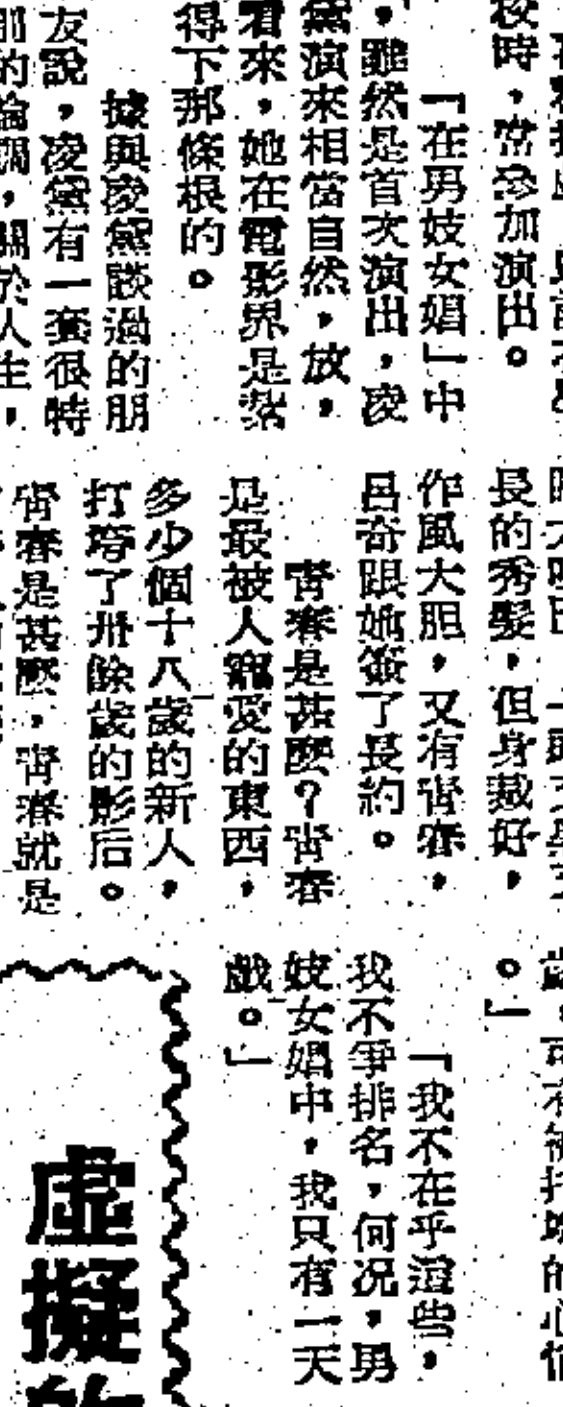 校時，常參加演出。
「在男妓女娼」中
，雖然是首次演出，凌
黛演來相當自然，放，
看來，她在電影界是紮
得下那條根的。
據與凌黛談過的朋
友說，凌黛有一套很特
那的論調，關於人生，
長的秀髮，但身裁好，
作風大胆，又有青春，
呂奇跟她簽了長約。
青春是甚麼？青春
是最被人寵愛的東西，
多少個十八歲的新人，
打垮了卅餘歲的影后。
青春是甚麼，青春就是
。」
「我不在乎這些，
我不爭排名，何況，男
妓女娼中，我只有一天
戲。」
虛擬